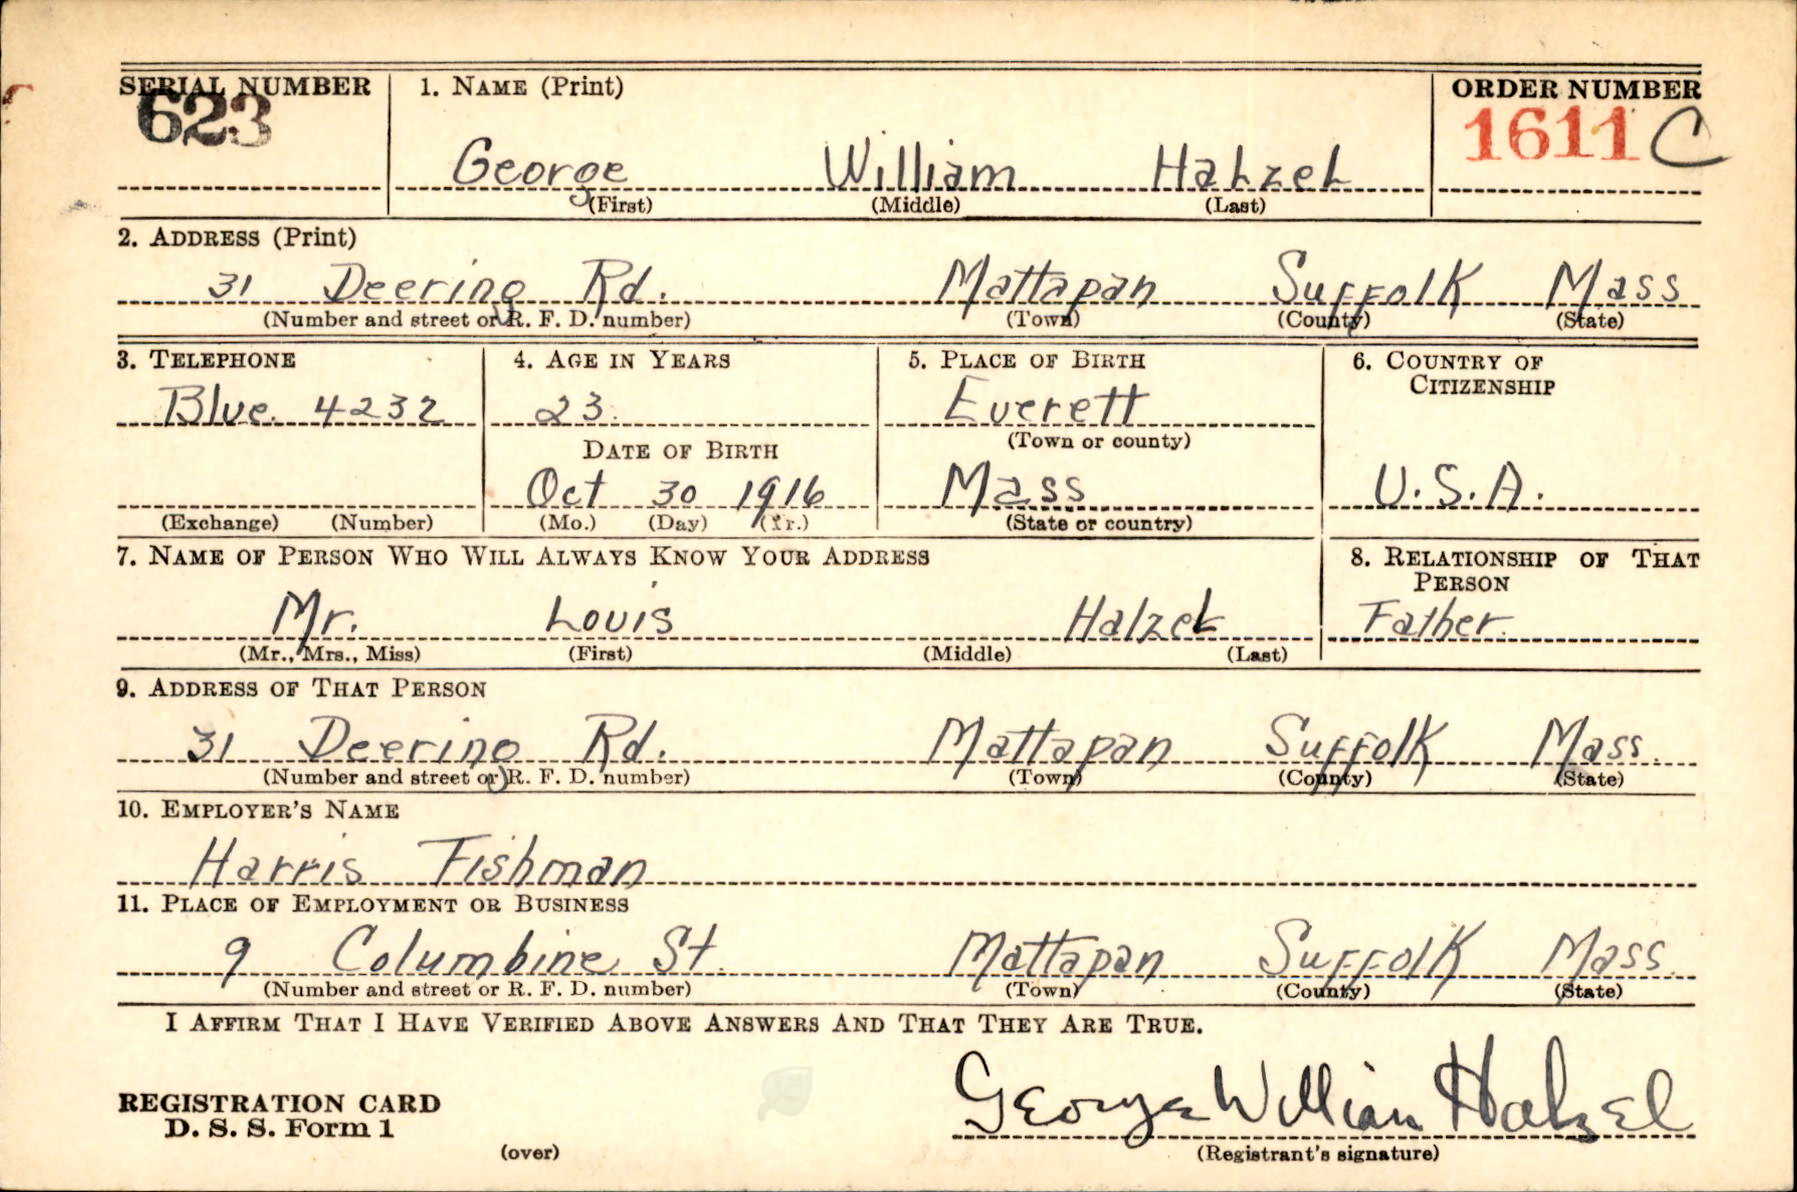 SERIAL NUMBER 1. NAME (Print) ORDER NUMBER
623 1611 C
George William Halzel
(First) (Middle) (Last)
2. ADDRESS (Print)
31 Deering Rd. Mattapan Suffolk Mass
(Number and street or R. F. D. number) (Town) (County) (State)
3. TELEPHONE 4. AGE IN YEARS 5. PLACE OF BIRTH 6. COUNTRY OF
CITIZENSHIP
Blue. 4232 23. Everett
(Town or county)
DATE OF BIRTH
Oct 30 1916 Mass U.S.A.
(Exchange) (Number) (Mo.) (Day) (Yr.) (State or country)
7. NAME OF PERSON WHO WILL ALWAYS KNOW YOUR ADDRESS 8. RELATIONSHIP OF THAT
PERSON
Mr. Louis Halzel Father.
(Mr., Mrs., Miss) (First) (Middle) (Last)
9. ADDRESS OF THAT PERSON
31 Deering Rd. Mattapan Suffolk Mass.
(Number and street or R. F. D. number) (Town) (County) (State)
10. EMPLOYER'S NAME
Harris Fishman
11. PLACE OF EMPLOYMENT OR BUSINESS
9 Columbine St. Mattapan Suffolk Mass.
(Number and street or R. F. D. number) (Town) (County) (State)
I AFFIRM THAT I HAVE VERIFIED ABOVE ANSWERS AND THAT THEY ARE TRUE.
REGISTRATION CARD
D. S. S. Form 1
George William Halzel
(over) (Registrant's signature)